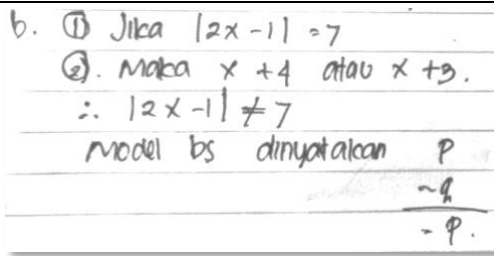 b. ① Jika |2x-1| = 7
②. Maka x +4 atau x +3.
∴ |2x-1| ≠ 7
Model bs dinyatakan P
~q
- P.